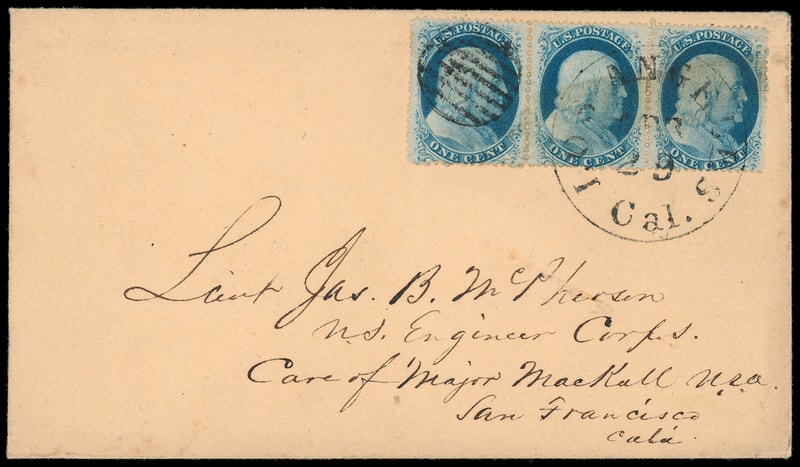 U.S. POSTAGE U.S. POSTAGE U.S. POSTAGE
ONE CENT ONE CENT ONE CENT
LOS ANGELES
APR
29
Cal.
Lieut Jas. B. McPherson
U.S. Engineer Corps.
Care of Major Mackall U.S.A.
San Francisco
Cala.